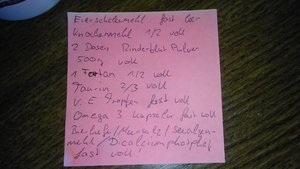 Eierschalenmehl fast leer
Knochenmehl 1/2 voll
2 Dosen Rinderblut Pulver
500g voll
1 Tartan 1/2 voll
Taurin 2/3 voll
V. E Tropfen fast voll
Omega 3 Kapseln fast voll
Bierhefe/Meersalz/Seealgen-
mehl/Dicalciumphosphat
fast voll